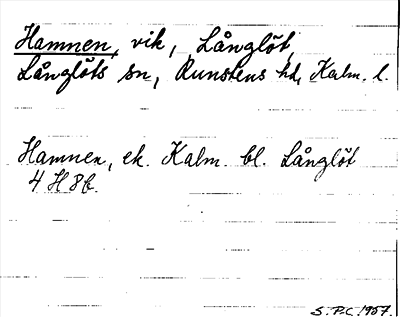 Hamnen, vik, Långlöt,
Långlöts sn, Runstens hd, Kalm. l.
Hamnen, ek. Kalm. bl. Långlöt
4 H 8 f.
S. P. C. 1957.